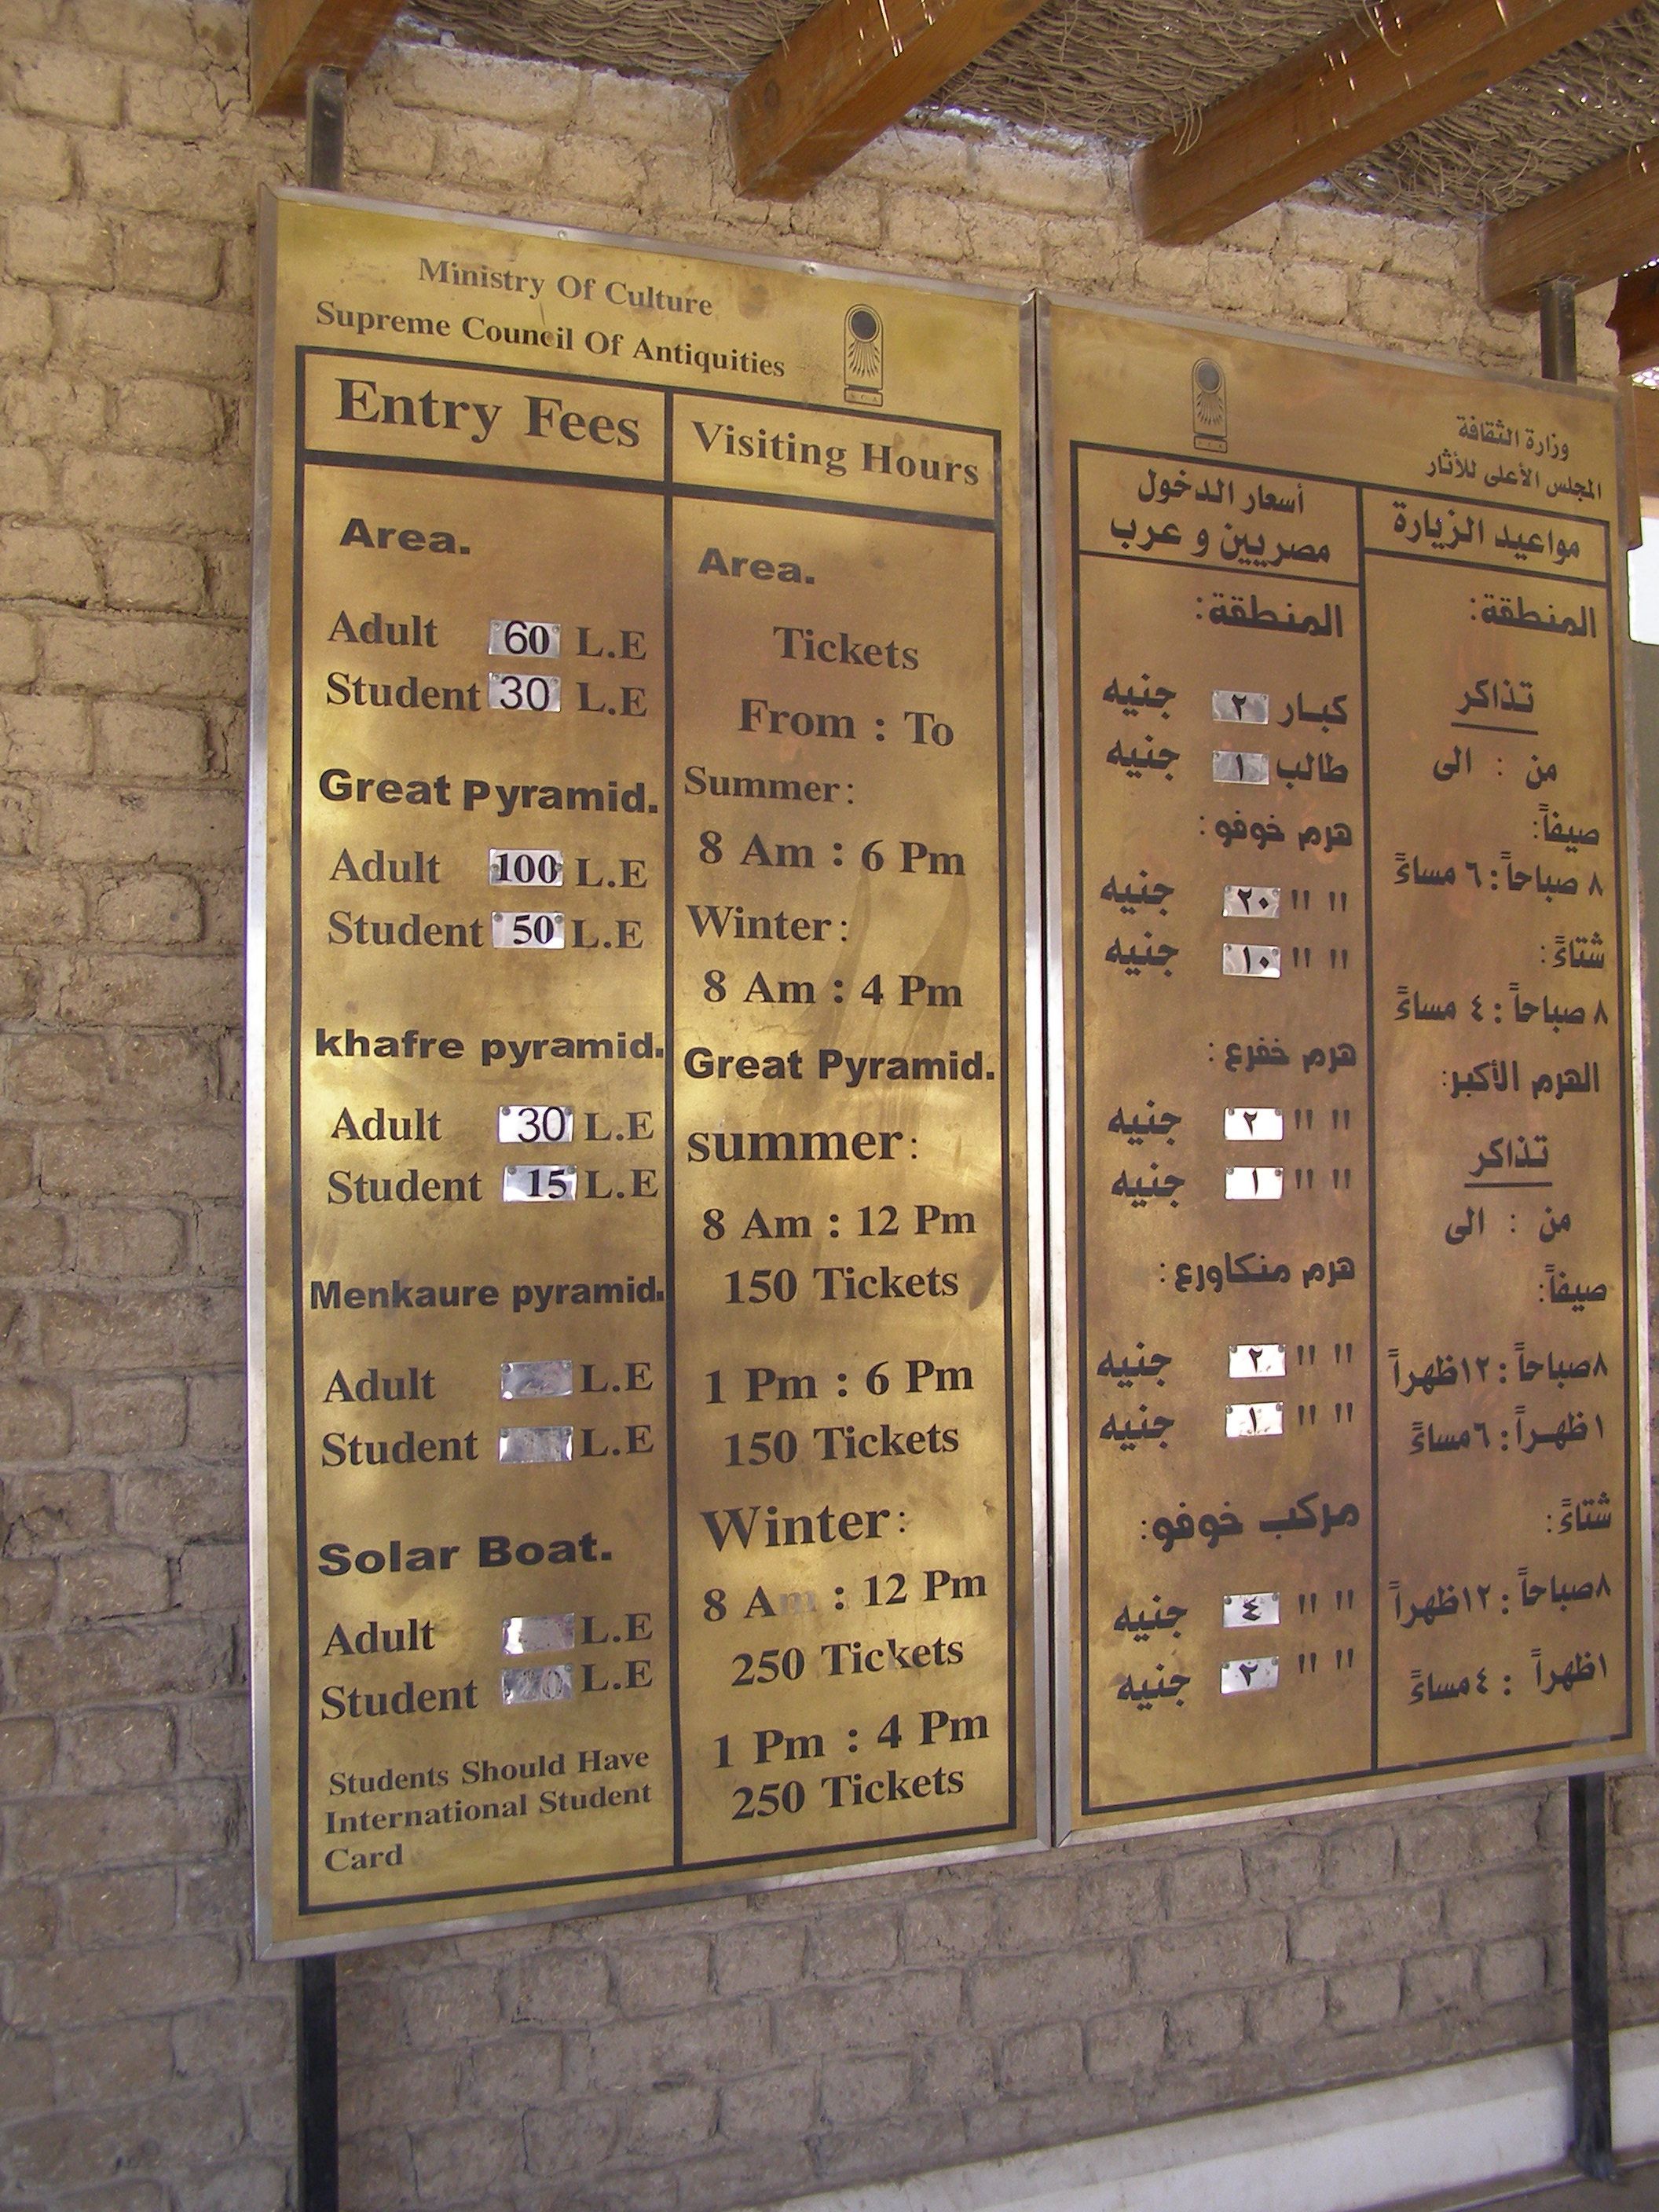 Ministry Of Culture
Supreme Council Of Antiquities
Entry Fees
Area.
Adult 60 L.E
Student 30 L.E
Great Pyramid.
Adult 100 L.E
Student 50 L.E
khafre pyramid.
Adult 30 L.E
Student 15 L.E
Menkaure pyramid.
Adult L.E
Student L.E
Solar Boat.
Adult L.E
Student 20 L.E
Students Should Have
International Student
Card
Visiting Hours
Area.
Tickets
From : To
Summer:
8 Am : 6 Pm
Winter:
8 Am : 4 Pm
Great Pyramid.
summer:
8 Am : 12 Pm
150 Tickets
1 Pm : 6 Pm
150 Tickets
Winter:
8 Am : 12 Pm
250 Tickets
1 Pm : 4 Pm
250 Tickets
وزارة الثقافة
المجلس الأعلى للأثار
مواعيد الزيارة
المنطقة:
تذاكر
من : الى
صيفاً:
٨ صباحاً: ٦ مساءً
شتاءً:
٨ صباحاً: ٤ مساءً
الهرم الأكبر:
تذاكر
من : الى
صيفاً:
٨صباحاً: ١٢ظهراً
١ظهراً: ٦مساءً
شتاءً:
٨صباحاً: ١٢ظهراً
١ظهراً : ٤مساءً
أسعار الدخول
مصريين و عرب
المنطقة:
كبار ٢ جنيه
طالب ١ جنيه
هرم خوفو:
" " ٢٠ جنيه
" " ١٠ جنيه
هرم خفرع:
" " ٢ جنيه
" " ١ جنيه
هرم منكاورع:
" " ٢ جنيه
" " ١ جنيه
مركب خوفو:
" " ٤ جنيه
" " ٢ جنيه